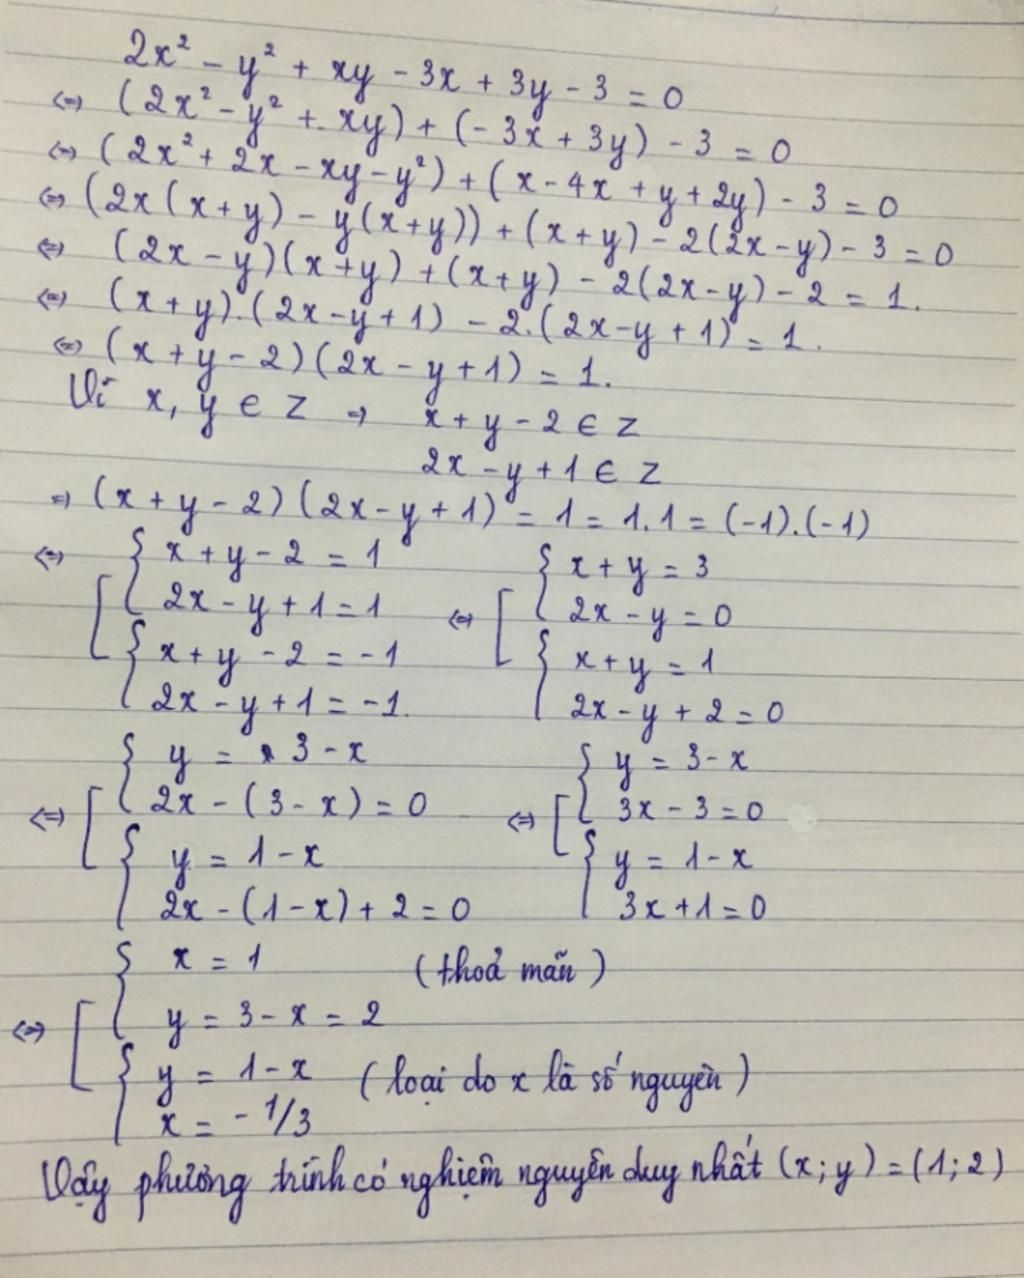 2x² - y² + xy - 3x + 3y - 3 = 0
<=> (2x² - y² + xy) + (-3x + 3y) - 3 = 0
<=> (2x² + 2x - xy - y²) + (x - 4x + y + 2y) - 3 = 0
<=> (2x(x+y) - y(x+y)) + (x+y) - 2(2x-y) - 3 = 0
<=> (2x - y)(x+y) + (x+y) - 2(2x-y) - 2 = 1.
<=> (x+y).(2x-y+1) - 2.(2x-y+1) = 1.
<=> (x+y-2)(2x-y+1) = 1.
Vì x, y ∈ Z => x+y-2 ∈ Z
2x-y+1 ∈ Z
=> (x+y-2)(2x-y+1) = 1 = 1.1 = (-1).(-1)
<=> [ { x+y-2 = 1 <=> [ { x+y = 3
2x-y+1 = 1 2x-y = 0
{ x+y-2 = -1 { x+y = 1
2x-y+1 = -1. 2x-y+2 = 0
<=> [ { y = 3-x <=> [ { y = 3-x
2x-(3-x) = 0 3x-3 = 0
{ y = 1-x { y = 1-x
2x-(1-x)+2 = 0 3x+1 = 0
<=> [ { x = 1 (thoả mãn)
y = 3-x = 2
{ y = 1-x (loại do x là số nguyên)
x = -1/3
Vậy phương trình có nghiệm nguyên duy nhất (x;y) = (1;2)